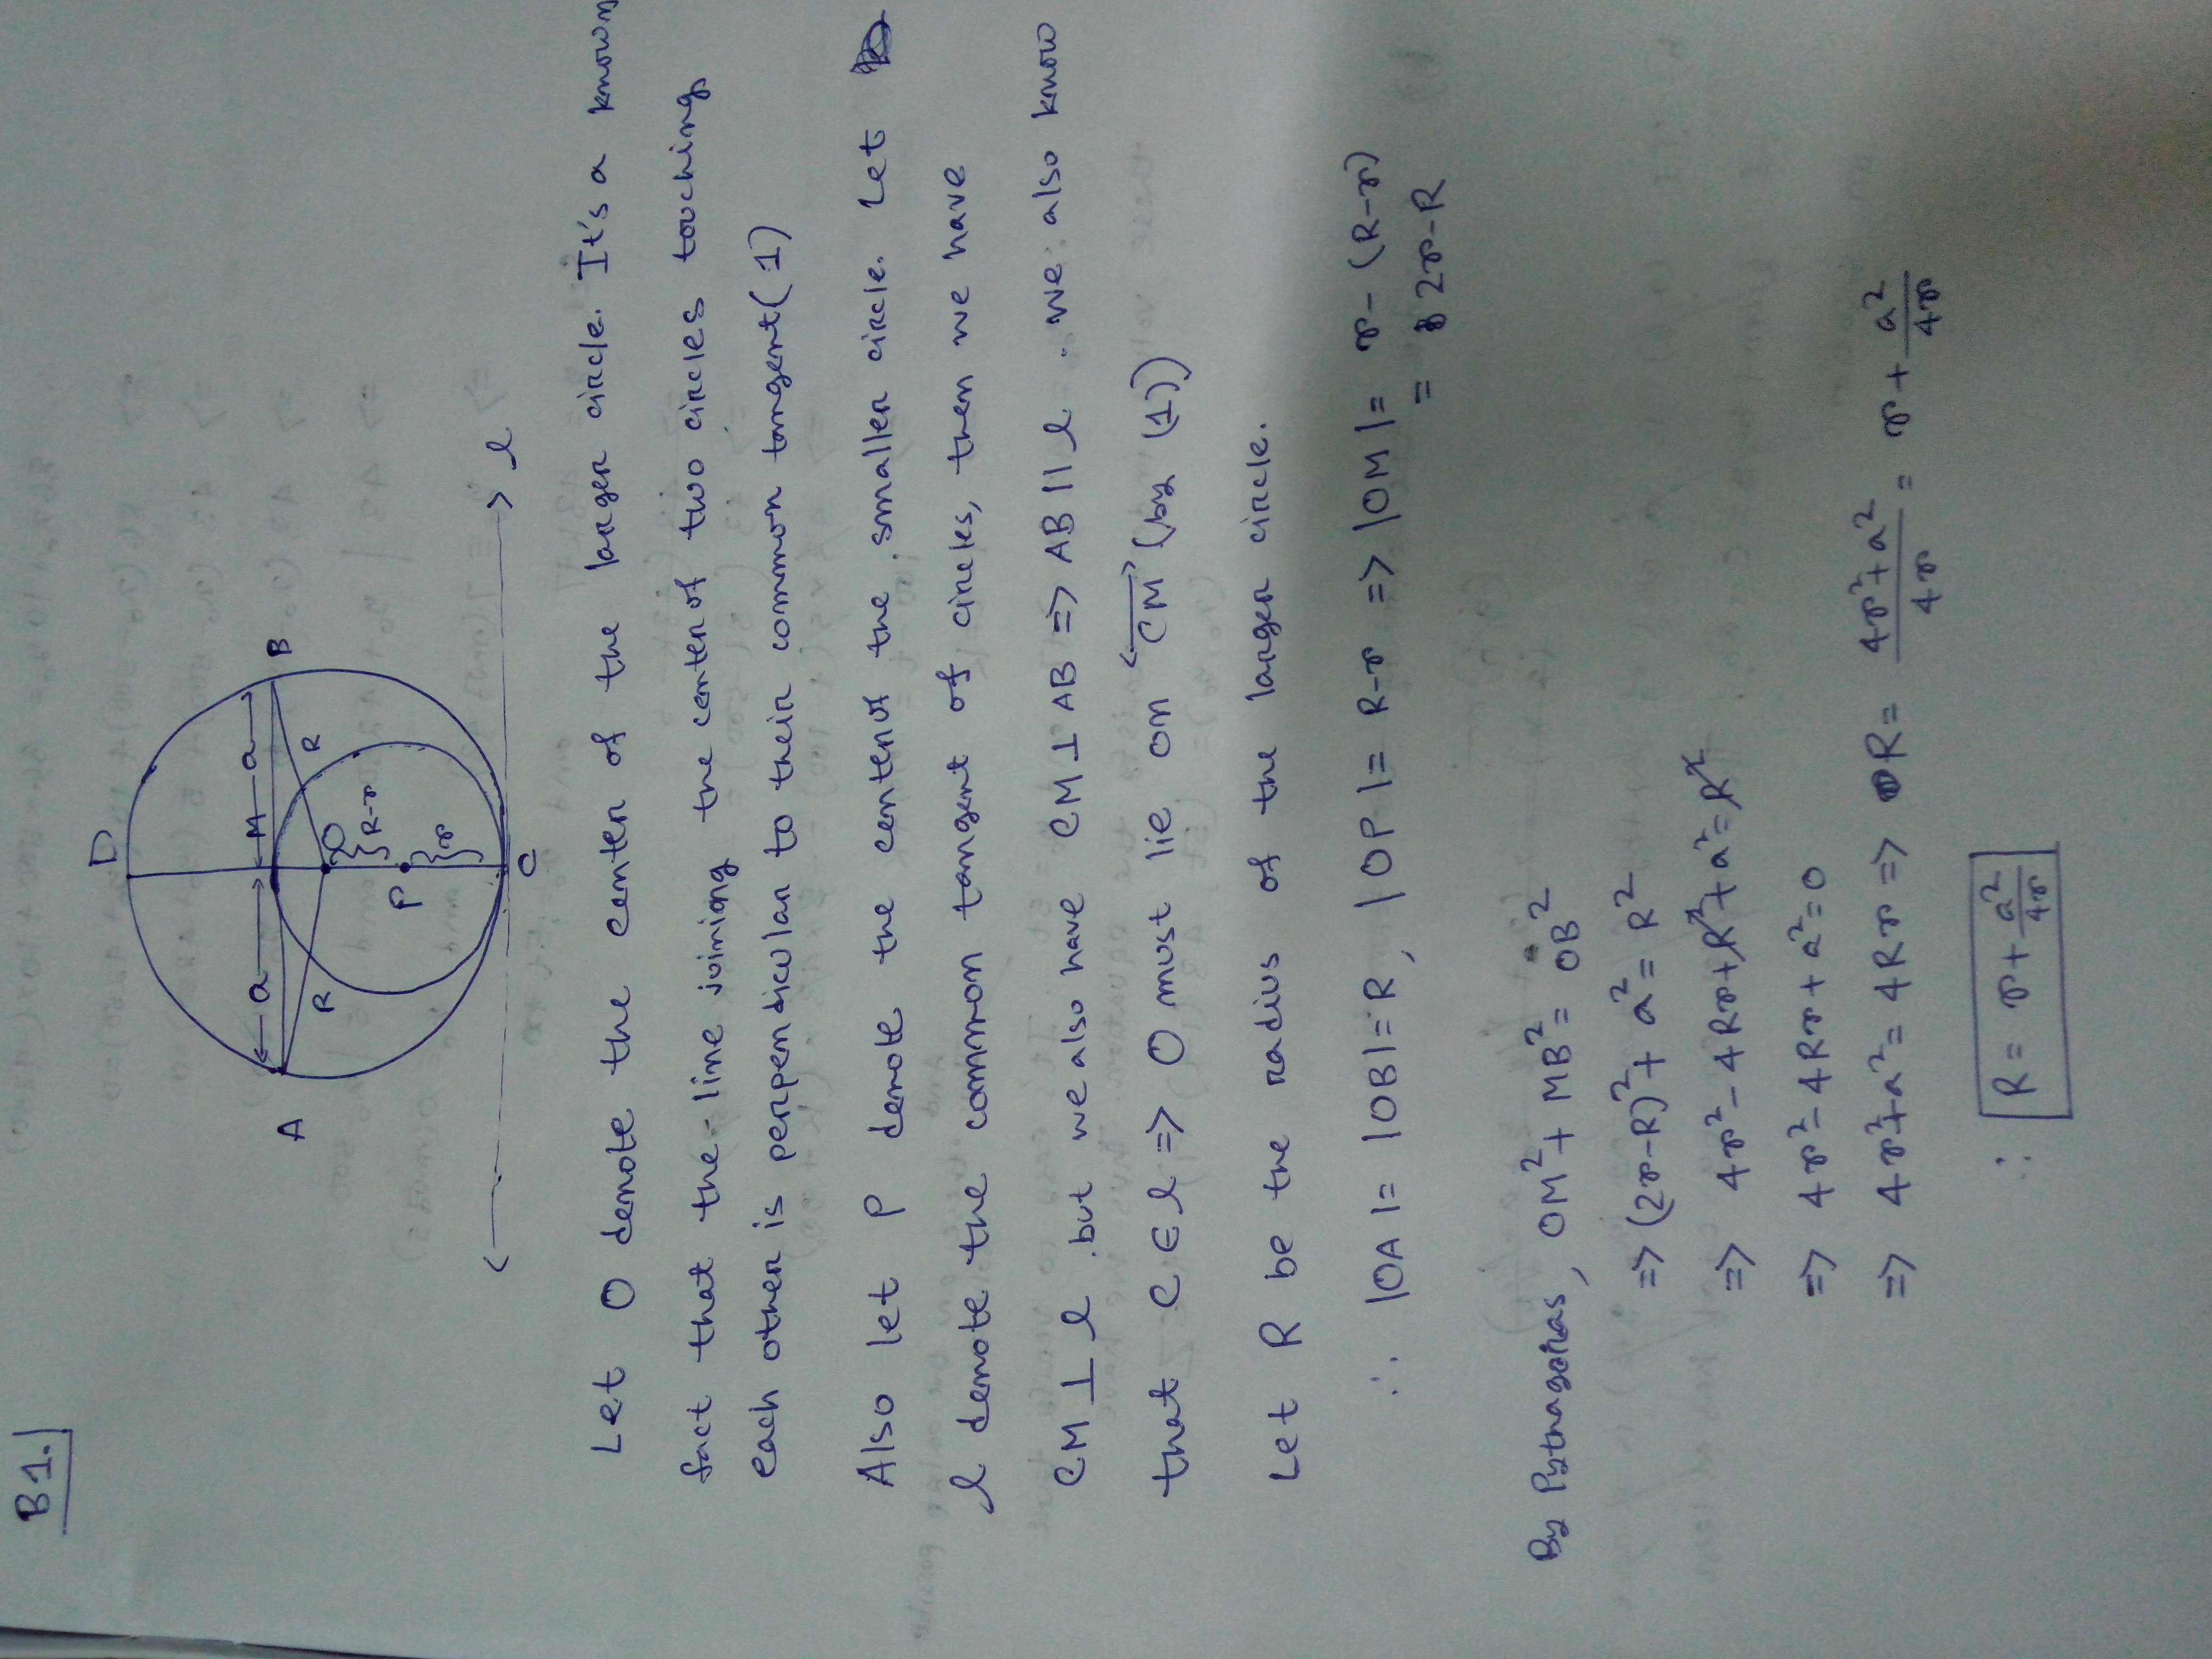 B1.
D
A
B
a
M
a
R
R
O
R-r
P
r
C
l
Let O denote the center of the larger circle. It's a known
fact that the line joining the center of two circles touching
each other is perpendicular to their common tangent (1)
Also let P denote the center of the smaller circle. Let
l denote the common tangent of circles, then we have
CM ⊥ l but we also have CM ⊥ AB => AB || l. we also know
that C ∈ l => O must lie on CM (by (1))
Let R be the radius of the larger circle.
∴ |OA| = |OB| = R, |OP| = R-r => |OM| = r-(R-r)
= 2r-R
By Pythagoras, OM² + MB² = OB²
=> (2r-R)² + a² = R²
=> 4r² - 4Rr + R² + a² = R²
=> 4r² - 4Rr + a² = 0
=> 4r² + a² = 4Rr => R = (4r² + a²)/4r = r + a²/4r
∴ R = r + a²/4r